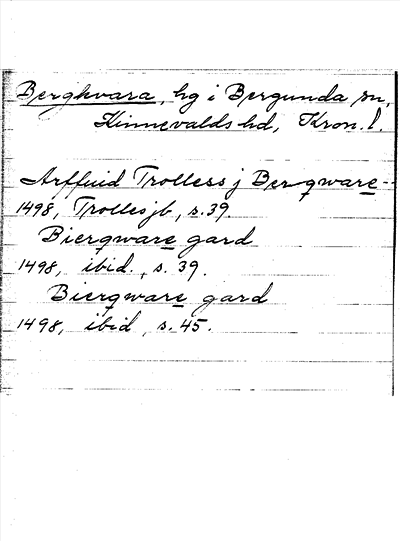 Bergkvara, hg i Bergunda sn,
Kinnevalds hd, Kron. l.
Arffuid Trolless j Bergware--
1498, Trolles jb, s. 39.
Biergware gard
1498, ibid., s. 39.
Biergware gard
1498, ibid, s. 45.